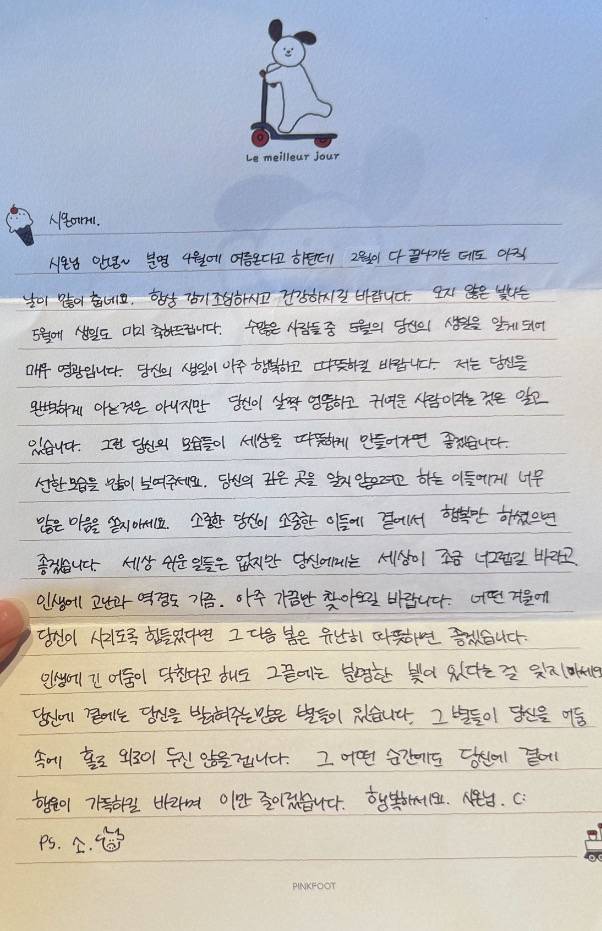 Le meilleur jour
시온에게.
시온님 안녕~ 분명 4월에 여름온다고 하던데 2월이 다 끝나가는 데도 아직
날이 많이 춥네요. 항상 감기조심하시고 건강하시길 바랍니다. 오지 않은 빛나는
5월에 생일도 미리 축하드립니다. 수많은 사람들 중 5월의 당신의 생일을 알게 되어
매우 영광입니다. 당신의 생일이 아주 행복하고 따뜻하길 바랍니다. 저는 당신을
완벽하게 아는것은 아니지만 당신이 살짝 엉뚱하고 귀여운 사람이라는 것은 알고
있습니다. 그런 당신의 모습들이 세상을 따뜻하게 만들어가면 좋겠습니다.
선한모습을 많이 보여주세요. 당신의 곧은 곳을 알지않으려고 하는 이들에게 너무
많은 마음을 쏟지마세요. 소중한 당신이 소중한 이들에 곁에서 행복만 하셨으면
좋겠습니다. 세상 쉬운일들은 없지만 당신에게는 세상이 조금 너그럽길 바라고
인생에 고난과 역경도 가끔. 아주 가끔만 찾아오길 바랍니다. 어떤 겨울에
당신이 시리도록 힘들었다면 그 다음 봄은 유난히 따뜻하면 좋겠습니다.
인생에 긴 어둠이 닥친다고 해도 그끝에는 분명한 빛이 있다는 걸 잊지마세요
당신에 곁에는 당신을 밝혀주는 많은 별들이 있습니다. 그 별들이 당신을 어둠
속에 홀로 외로이 두진 않을겁니다. 그 어떤 순간에도 당신에 곁에
행운이 가득하길 바라며 이만 줄이겠습니다. 행복하세요. 시온님. C:
PS. 소.
PINKFOOT